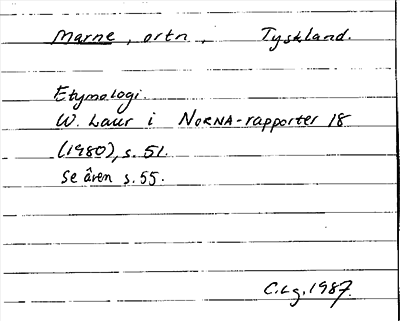 Marne, ortn, Tyskland.
Etymologi.
W. Laur i NORNA-rapporter 18
(1980), s. 51.
Se även s. 55.
C.Lg. 1987.